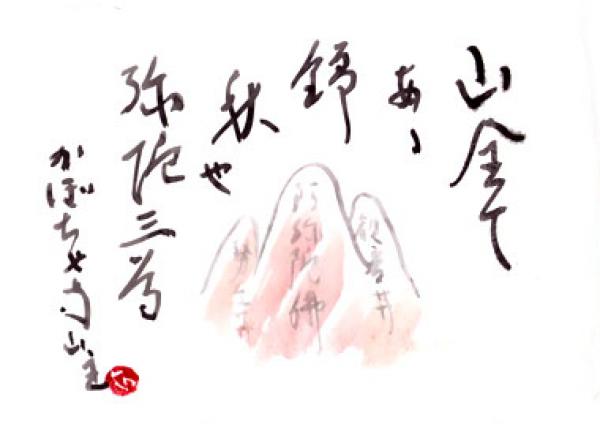 山全て
あゝ
錦
秋や
弥陀三尊
かぼちゃ寺山主
観音菩
阿弥陀佛
勢至菩